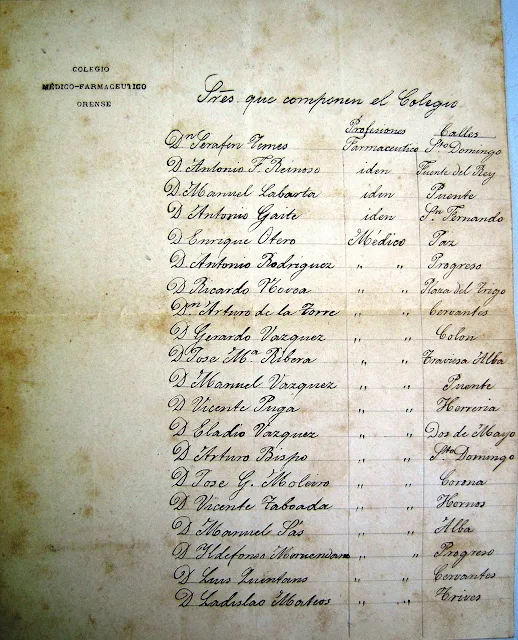 COLEGIO
MÉDICO-FARMACEUTICO
ORENSE
Sres. que componen el Colegio
Profesiones Calles
Dn Serafin Temes Farmaceutico Sto Domingo
D Antonio F. Reinoso iden Fuente del Rey
D Manuel Labarta iden Puente
D Antonio Gaite iden Sn Fernando
D Enrique Otero Médico Paz
D. Antonio Rodriguez " " Progreso
D Ricardo Novoa " " Plaza del Trigo
Dn. Arturo de la Torre " " Cervantes
D Gerardo Vazquez " " Colon
D Jose Ma Ribera " " Travesa Alba
D Manuel Vazquez " " Puente
D Vicente Puga " " Herreria
D Eladio Vazquez " " Dos de Mayo
D Arturo Bispo " " Sto Domingo
D Jose G. Moleiro " " Corona
D Vicente Taboada " " Hornos
D Manuel Sás " " Alba
D Ildefonso " " Progreso
D Luis Quintans " " Cervantes
D Ladislao Mateos " " Trives